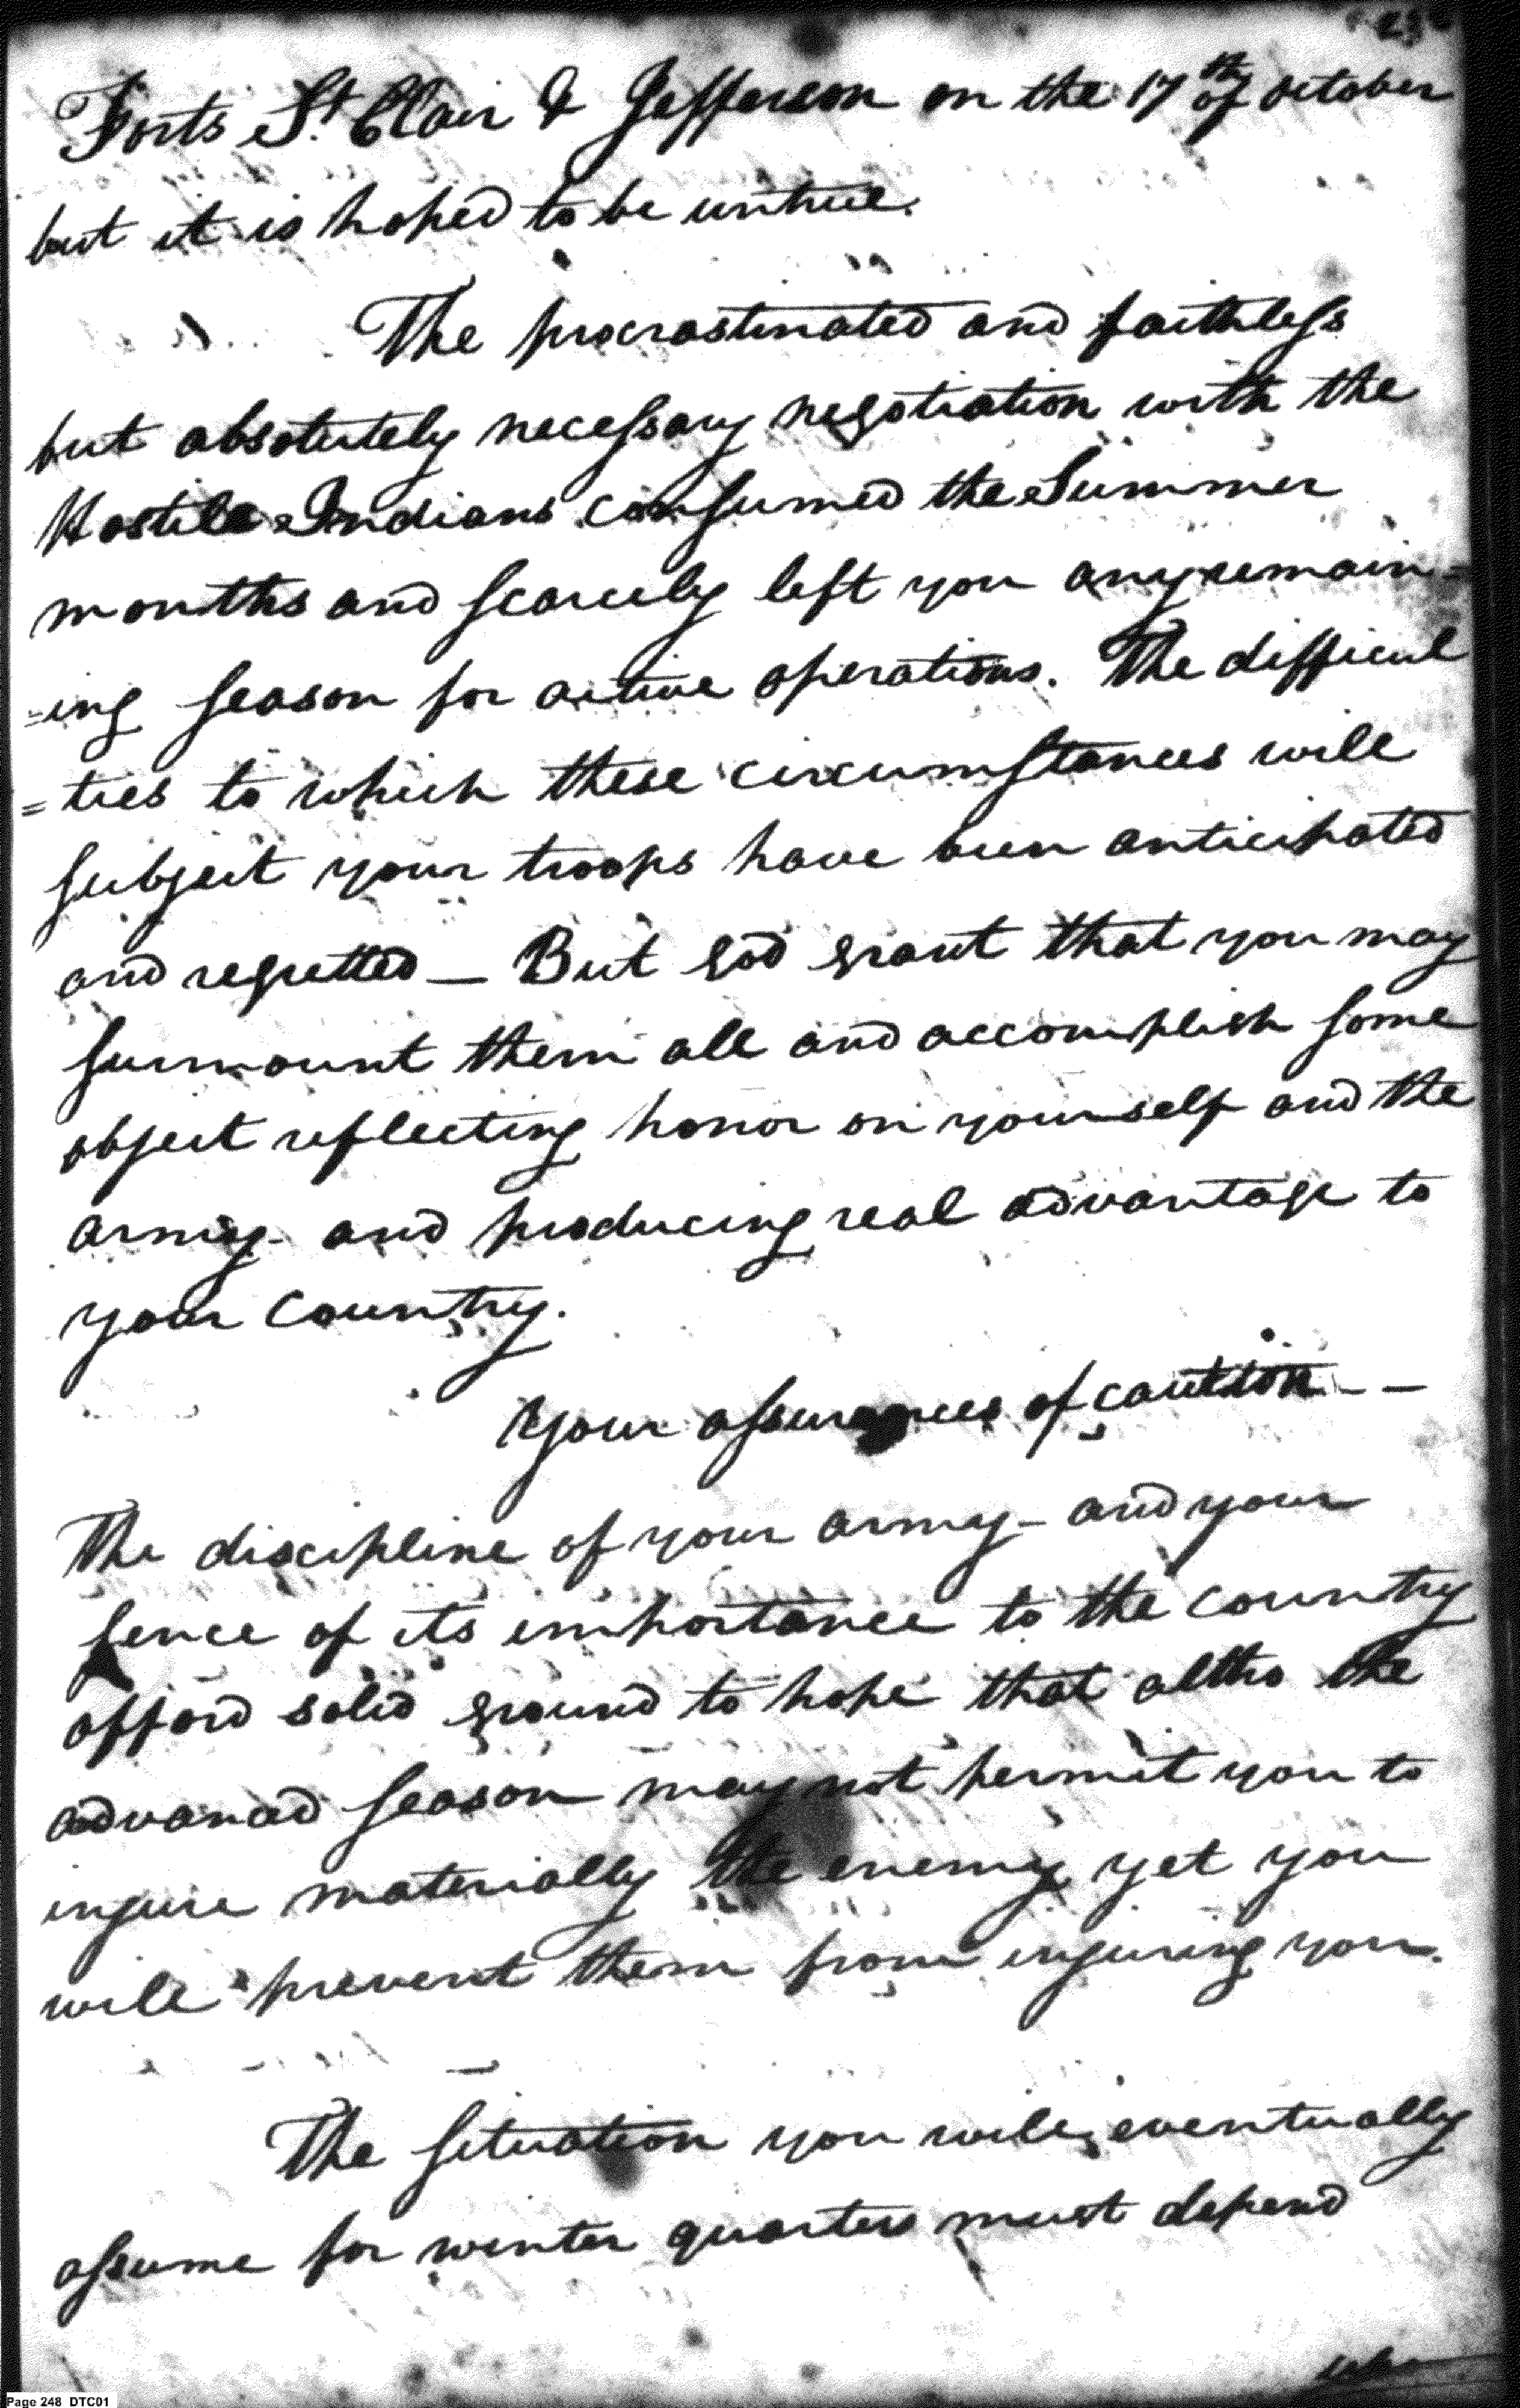 Forts St. Clair & Jefferson on the 17th of October
but it is hoped to be untrue.
The procrastinated and faithless
but absolutely necessary negotiation with the
Hostile Indians consumed the Summer
months and scarcely left you any remain-
=ing season for active operations. The difficul
=ties to which these circumstances will
subject your troops have been anticipated
and regretted — But god grant that you may
surmount them all and accomplish some
object reflecting honor on yourself and the
army - and producing real advantage to
your Country.
Your assurances of caution - -
The discipline of your army - and your
sence of its importance to the country
afford solid ground to hope that altho the
advanced season may not permit you to
injure materially the enemy yet you
will prevent them from injuring you.
The situation you will eventually
assume for winter quarters must depend
Page 248 DTC01